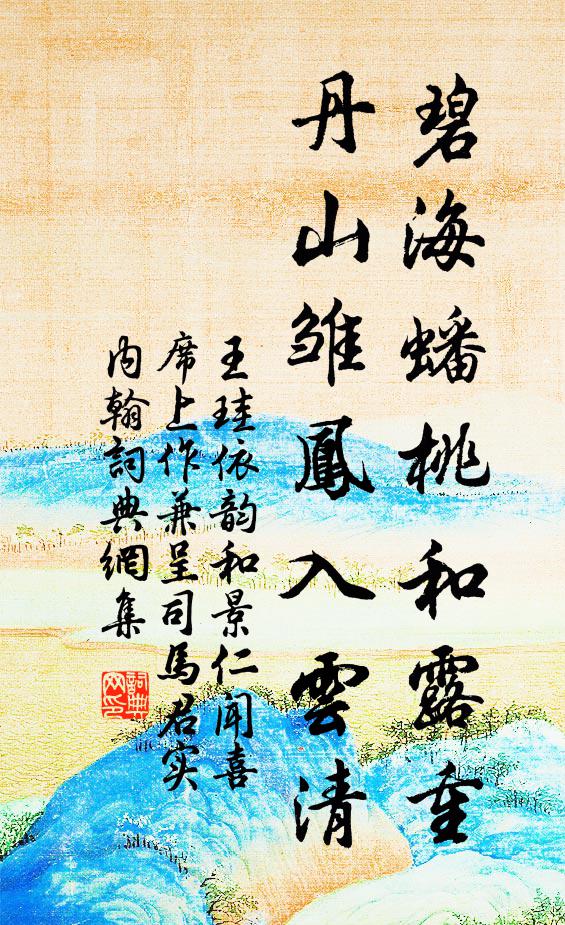 碧海蟠桃和露重
丹山雏鳳入雲清
王珪依韵和景仁闻喜
席上作兼呈司馬君实
内翰詞典網集
詞典
网印